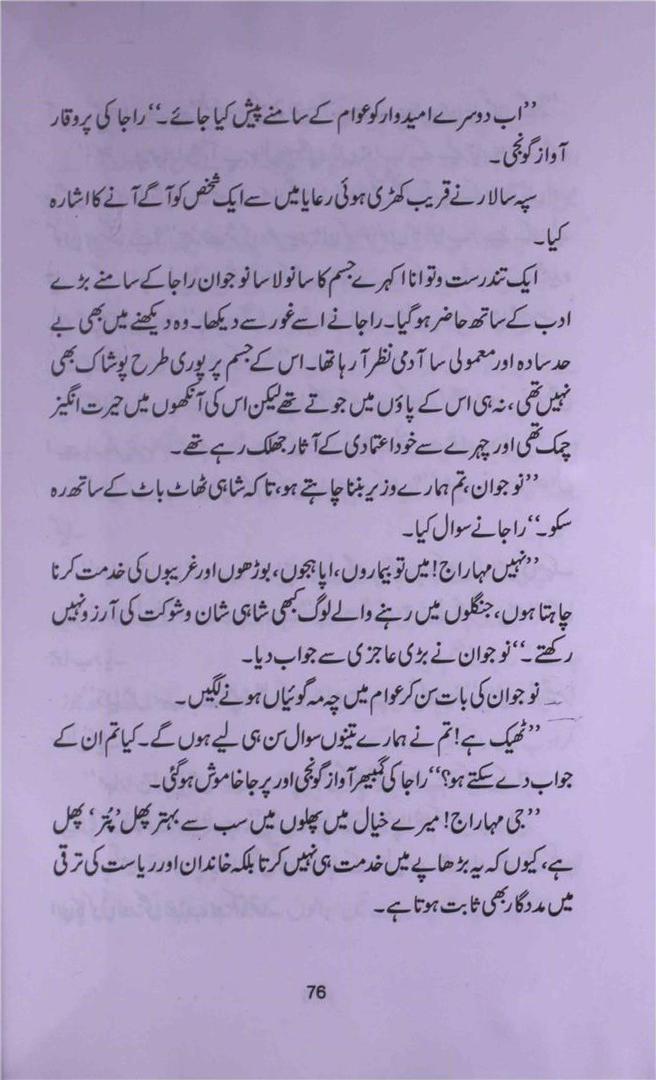 ’’اب دوسرے امیدوار کو عوام کے سامنے پیش کیا جائے۔‘‘ راجا کی پروقار
آواز گونجی۔
سپہ سالار نے قریب کھڑی ہوئی رعایا میں سے ایک شخص کو آگے آنے کا اشارہ
کیا۔
ایک تندرست و توانا اکہرے جسم کا سانولا سا نوجوان راجا کے سامنے بڑے
ادب کے ساتھ حاضر ہو گیا۔ راجا نے اسے غور سے دیکھا۔ وہ دیکھنے میں بھی بے
حد سادہ اور معمولی سا آدمی نظر آ رہا تھا۔ اس کے جسم پر پوری طرح پوشاک بھی
نہیں تھی، نہ ہی اس کے پاؤں میں جوتے تھے لیکن اس کی آنکھوں میں حیرت انگیز
چمک تھی اور چہرے سے خود اعتمادی کے آثار جھلک رہے تھے۔
’’نوجوان، تم ہمارے وزیر بننا چاہتے ہو، تاکہ شاہی ٹھاٹ باٹ کے ساتھ رہ
سکو۔‘‘ راجا نے سوال کیا۔
’’نہیں مہاراج! میں تو بیماروں، اپاہجوں، بوڑھوں اور غریبوں کی خدمت کرنا
چاہتا ہوں، جنگلوں میں رہنے والے لوگ کبھی شاہی شان و شوکت کی آرزو نہیں
رکھتے۔‘‘ نوجوان نے بڑی عاجزی سے جواب دیا۔
نوجوان کی بات سن کر عوام میں چہ مہ گوئیاں ہونے لگیں۔
’’ٹھیک ہے! تم نے ہمارے تینوں سوال سن ہی لیے ہوں گے۔ کیا تم ان کے
جواب دے سکتے ہو؟‘‘ راجا کی گمبھیر آواز گونجی اور پرجا خاموش ہو گئی۔
’’جی مہاراج! میرے خیال میں پھلوں میں سب سے بہتر پھل ’پُتر‘ پھل
ہے، کیوں کہ یہ بڑھاپے میں خدمت ہی نہیں کرتا بلکہ خاندان اور ریاست کی ترقی
میں مددگار بھی ثابت ہوتا ہے۔
76